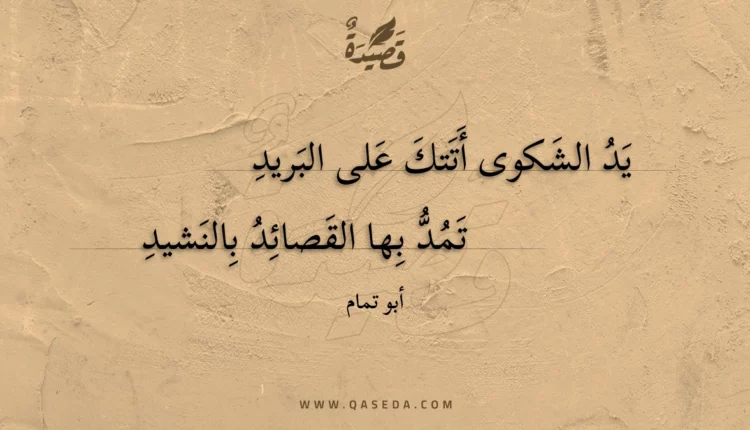 قَصِيدَةٌ
يَدُ الشَكوى أَتَتكَ عَلى البَريدِ
تَمُدُّ بِها القَصائِدُ بِالنَشيدِ
أبو تمام
WWW.QASEDA.COM